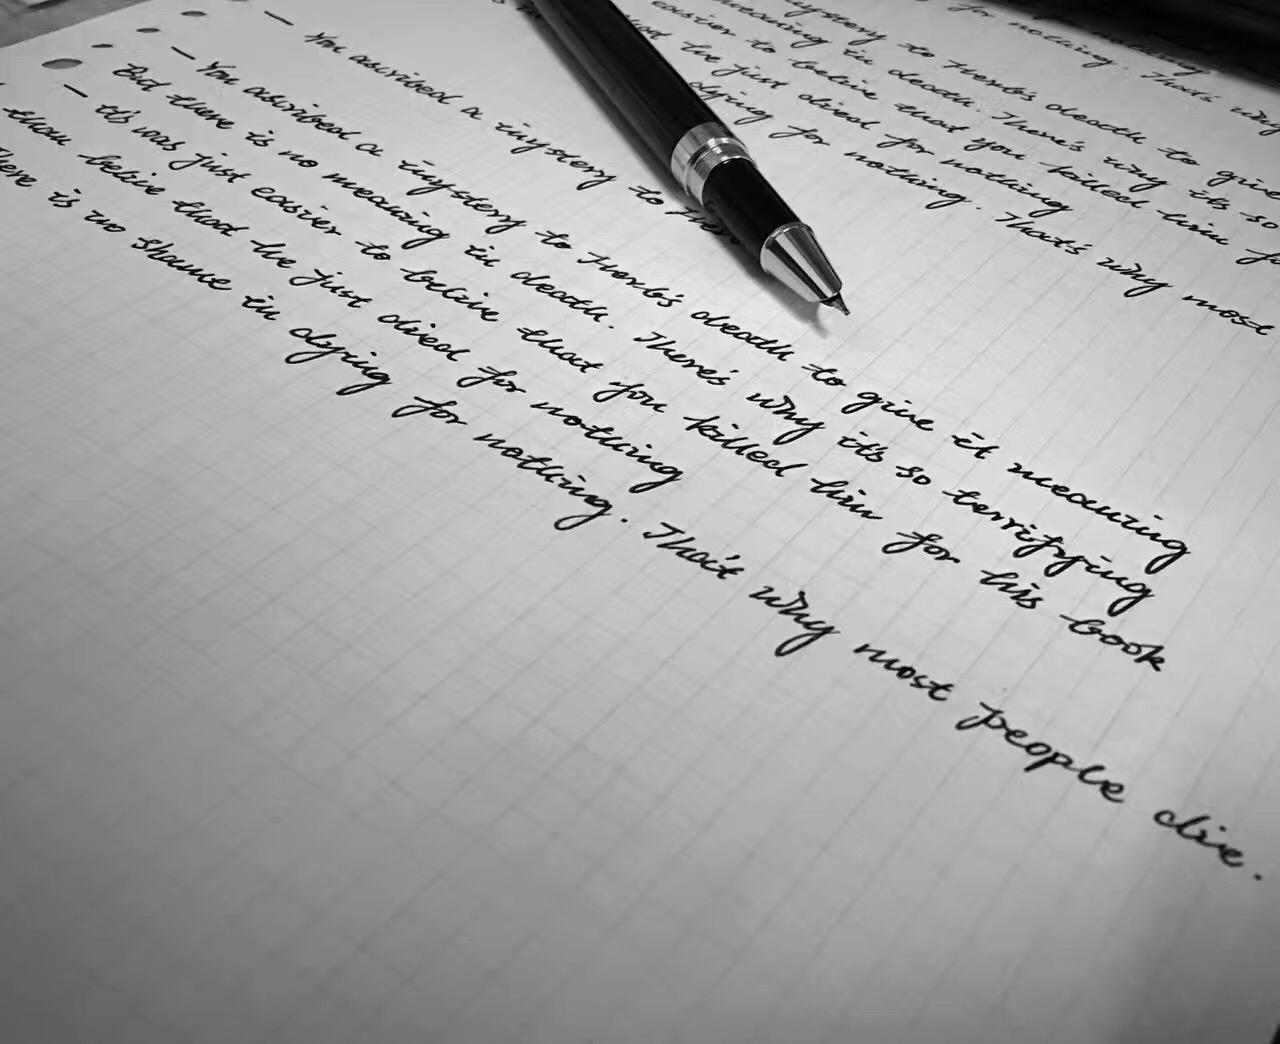 for nothing. That's why
mystery to Herb's death to give
meaning in death. There's why it's so
easier to belive that you killed him
that he just died for nothing
dying for nothing. That's why most
— You ascribed a mystery to
— You ascribed a mystery to Herb's death to give it meaning
But there is no meaning in death. There's why it's so terrifying
— It's was just easier to belive that you killed him for his book
than belive that he just died for nothing
There is no shame in dying for nothing. That's why most people die.